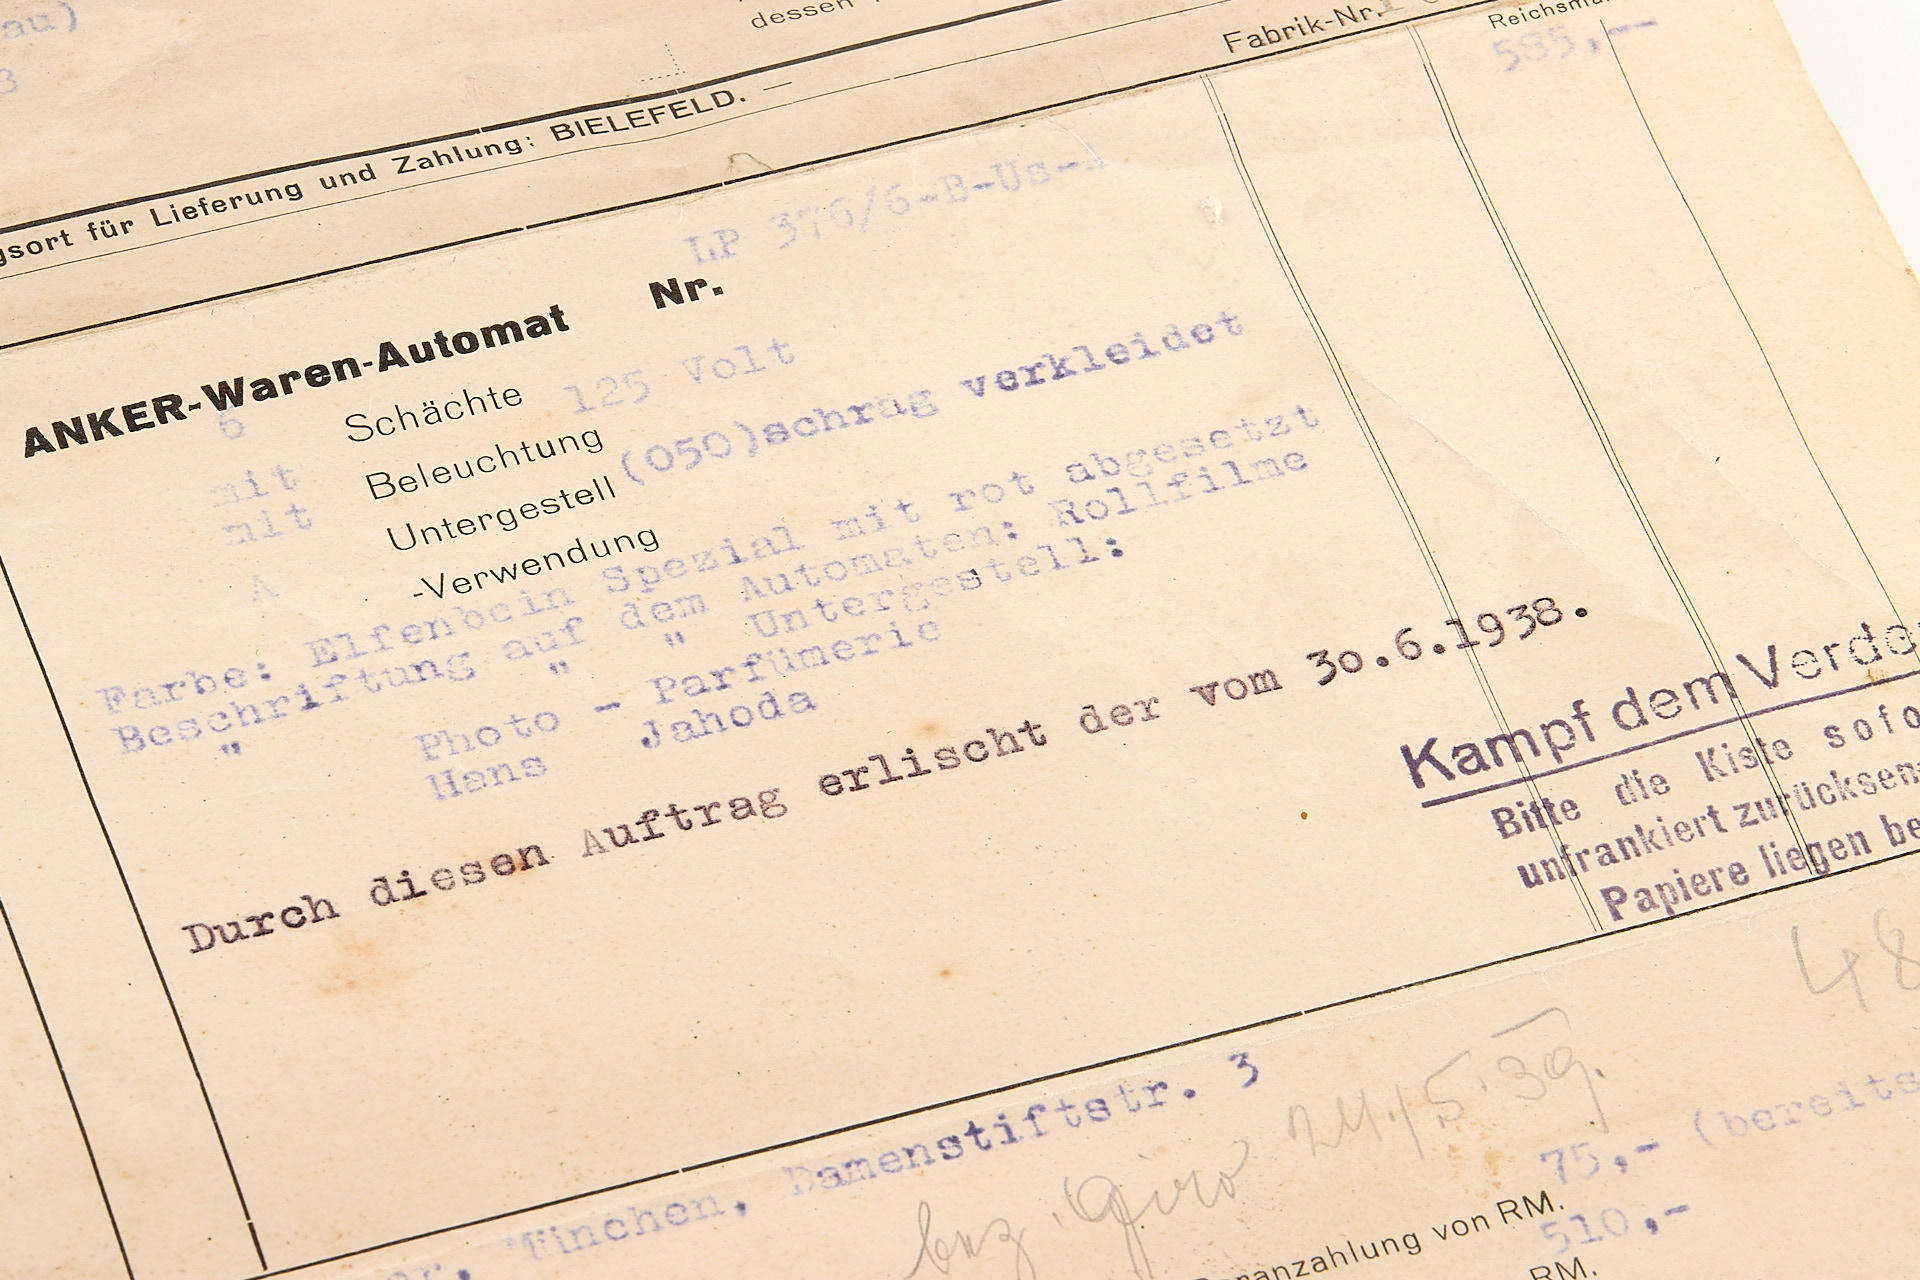 au)
3
dessen
Fabrik-Nr.
Reichsma
585,--
gsort für Lieferung und Zahlung: BIELEFELD. —
LP 376/6-B-Us-A
ANKER-Waren-Automat Nr.
6 Schächte
mit Beleuchtung 125 Volt
mit Untergestell (050)schrag verkleidet
A -Verwendung
Farbe: Elfenbein Spezial mit rot abgesetzt
Beschriftung auf dem Automaten: Rollfilme
" " " Untergestell:
Photo - Parfümerie
Hans Jahoda
Durch diesen Auftrag erlischt der vom 30.6.1938.
Kampf dem Verde
Bitte die Kiste sofo
unfrankiert zurücksen
Papiere liegen be
48
er, München, Damenstiftstr. 3
bez. Giro 24.5.39.
75,- (bereits
ranzahlung von RM.
510,-
RM.